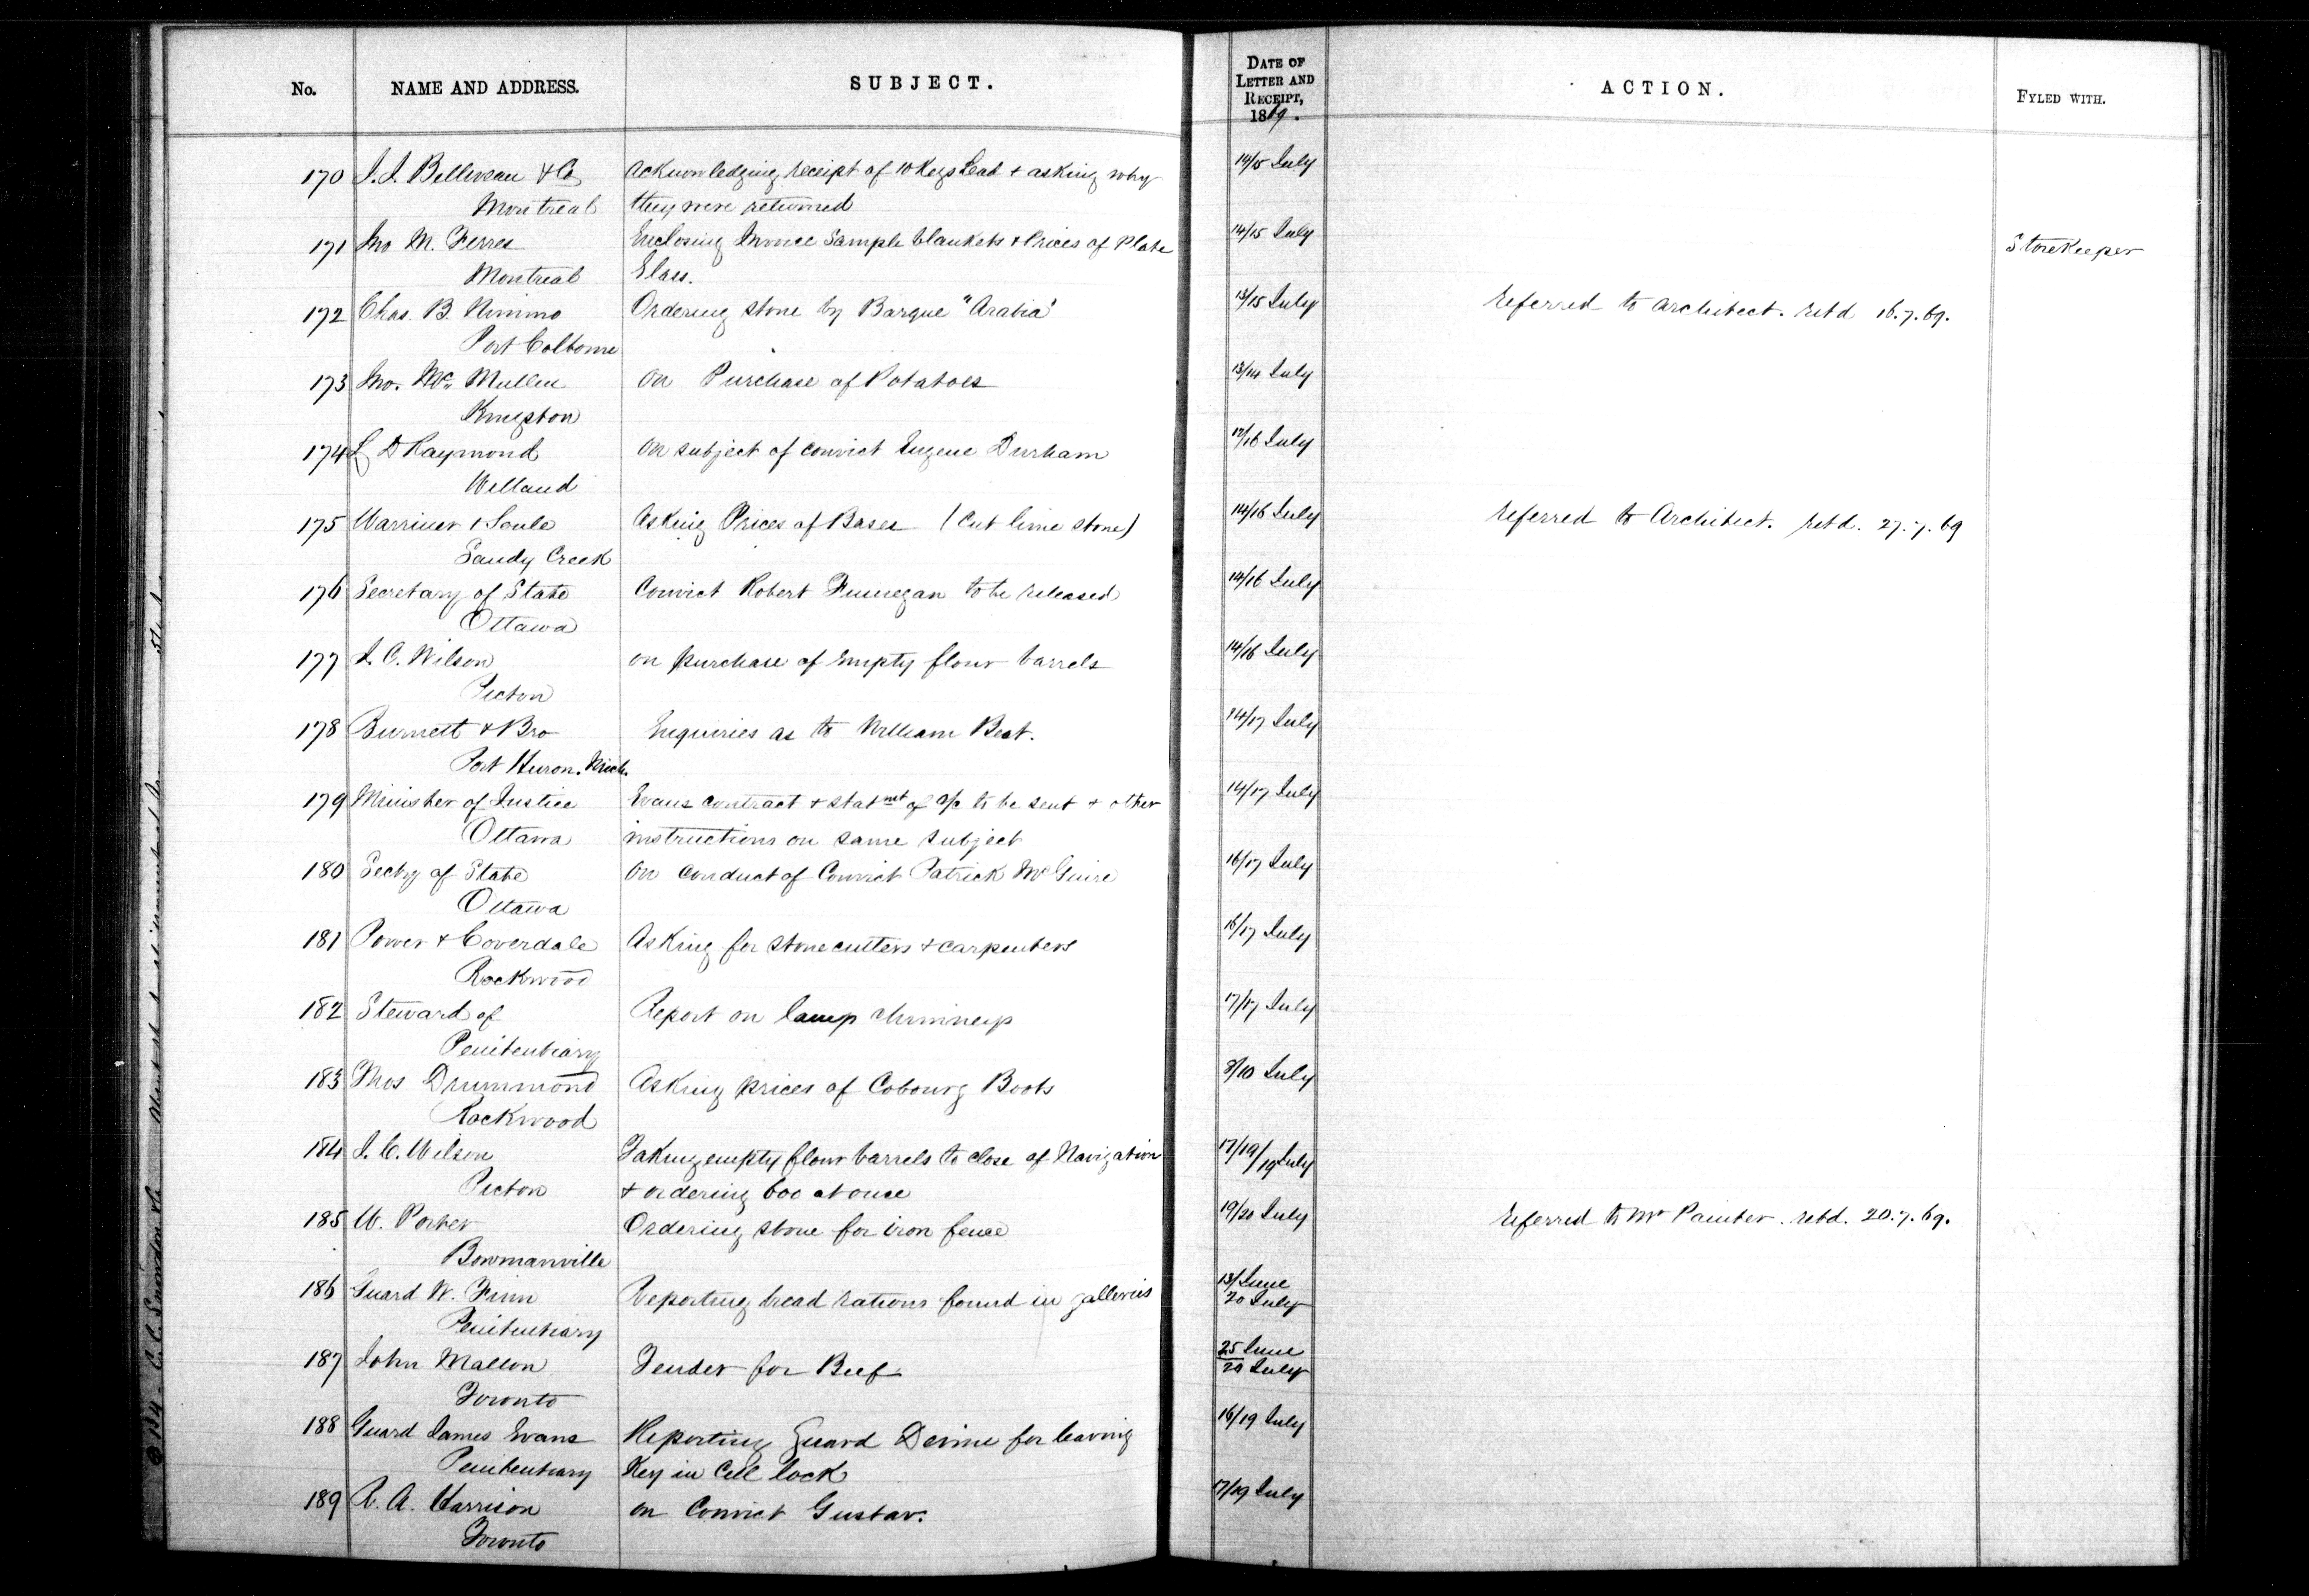 No. NAME AND ADDRESS. SUBJECT. DATE OF LETTER AND RECEIPT, 1869. ACTION. FYLED WITH.
170 J. J. Belliveau & Co Acknowledging receipt of 10 Kegs Lead & asking why 14/15 July
Montreal they were returned
171 Jno M. Ferres Enclosing Invoice Sample blankets & Prices of Plate 14/15 July Storekeeper
Montreal Glass.
172 Chas. B. Nimmo Ordering stone by Barque "Arabia" 13/15 July referred to architect. retd 16.7.69.
Port Colborne
173 Jno. Mc Mullen on Purchase of Potatoes 13/14 July
Kingston
174 L D Raymond on subject of convict Eugene Durham /16 July
Welland
175 Warriner & Soule Asking Prices of Bases (Cut lime stone) 14/16 July referred to Architect. retd. 27.7.69
Sandy Creek
176 Secretary of State Convict Robert Finnegan to be released 14/16 July
Ottawa
177 J. C. Wilson on purchase of empty flour barrels 14/16 July
Picton
178 Burnett & Bro Enquiries as to William Beat. 14/17 July
Port Huron. Mich.
179 Minister of Justice Evans contract & statmt of a/c to be sent & other 14/17 July
Ottawa instructions on same subject
180 Secty of State on conduct of Convict Patrick McGuire 16/17 July
Ottawa
181 Power & Coverdale Asking for stonecutters & carpenters 16/17 July
Rockwood
182 Steward of Report on lamp chimneys 17/17 July
Penitentiary
183 Thos Drummond Asking prices of Cobourg Boots 8/10 July
Rockwood
184 J. C. Wilson Taking empty flour barrels to close of Navigation 17/19/19 July
Picton & ordering 600 at once
185 W. Porter Ordering stone for iron fence 19/20 July referred to Mr Painter. retd. 20.7.69.
Bowmanville
186 Guard W. Finn Reporting bread rations found in galleries 13/June
Penitentiary 20 July
187 John Mallon Tender for Beef 25 June
Toronto 20 July
188 Guard James Evans Reporting Guard Devine for leaving 16/19 July
Penitentiary Key in Cell lock
189 R. A. Harrison on Convict Gustav. 17/19 July
Toronto